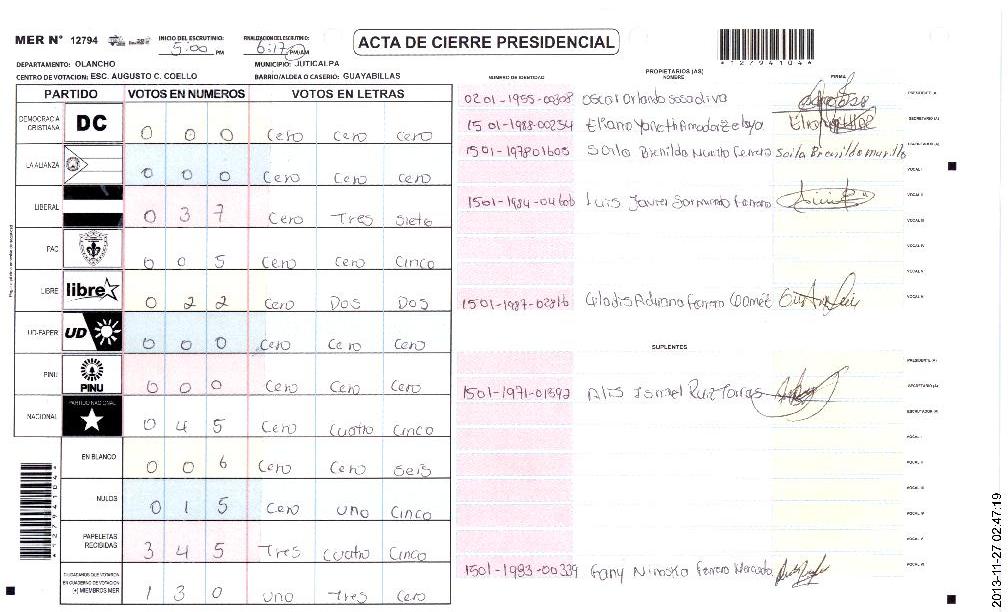 MER Nº 12794
INICIO DEL ESCRUTINIO: 5:00 PM
FINALIZACION DEL ESCRUTINIO: 6:17 PM/AM
ACTA DE CIERRE PRESIDENCIAL
*12794104*
DEPARTAMENTO: OLANCHO
MUNICIPIO: JUTICALPA
CENTRO DE VOTACION: ESC. AUGUSTO C. COELLO
BARRIO/ALDEA O CASERIO: GUAYABILLAS
PARTIDO VOTOS EN NUMEROS VOTOS EN LETRAS
DEMOCRACIA CRISTIANA DC 0 0 0 Cero Cero Cero
LA ALIANZA 0 0 0 Cero Cero Cero
LIBERAL 0 3 7 Cero Tres Siete
PAC 0 0 5 Cero Cero Cinco
LIBRE libre 0 2 2 Cero Dos Dos
UD-FAPER UD 0 0 0 Cero Cero Cero
PINU PINU 0 0 0 Cero Cero Cero
NACIONAL PARTIDO NACIONAL 0 4 5 Cero Cuatro Cinco
EN BLANCO 0 0 6 Cero Cero Seis
NULOS 0 1 5 Cero uno Cinco
PAPELETAS RECIBIDAS 3 4 5 Tres Cuatro Cinco
CIUDADANOS QUE VOTARON EN CUADERNO DE VOTACION (+) MIEMBROS MER 1 3 0 uno Tres Cero
*12794104*
NUMERO DE IDENTIDAD
PROPIETARIOS (AS)
NOMBRE
FIRMA
0201-1955-00808 Oscar Orlando PRESIDENTE (A)
1501-1988-00234 SECRETARIO (A)
1501-197801605 Saila ESCRUTADOR (A)
VOCAL I
1501-1984-04606 Luis Javier Sarmiento Ferrera VOCAL II
VOCAL III
VOCAL IV
VOCAL V
1501-1987-02816 Gladis Adriana Ferrera VOCAL VI
SUPLENTES
PRESIDENTE (A)
1501-1971-01892 Alis Ismael Ruiz Torras SECRETARIO (A)
ESCRUTADOR (A)
VOCAL I
VOCAL II
VOCAL III
VOCAL IV
VOCAL V
1501-1983-00339 Fany Ninoska Ferrera Mercado VOCAL VI
2013-11-27 02:47:19